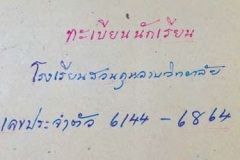 ทะเบียนนักเรียน
โรงเรียนสวนกุหลาบวิทยาลัย
เลขประจำตัว 6144 - 6864